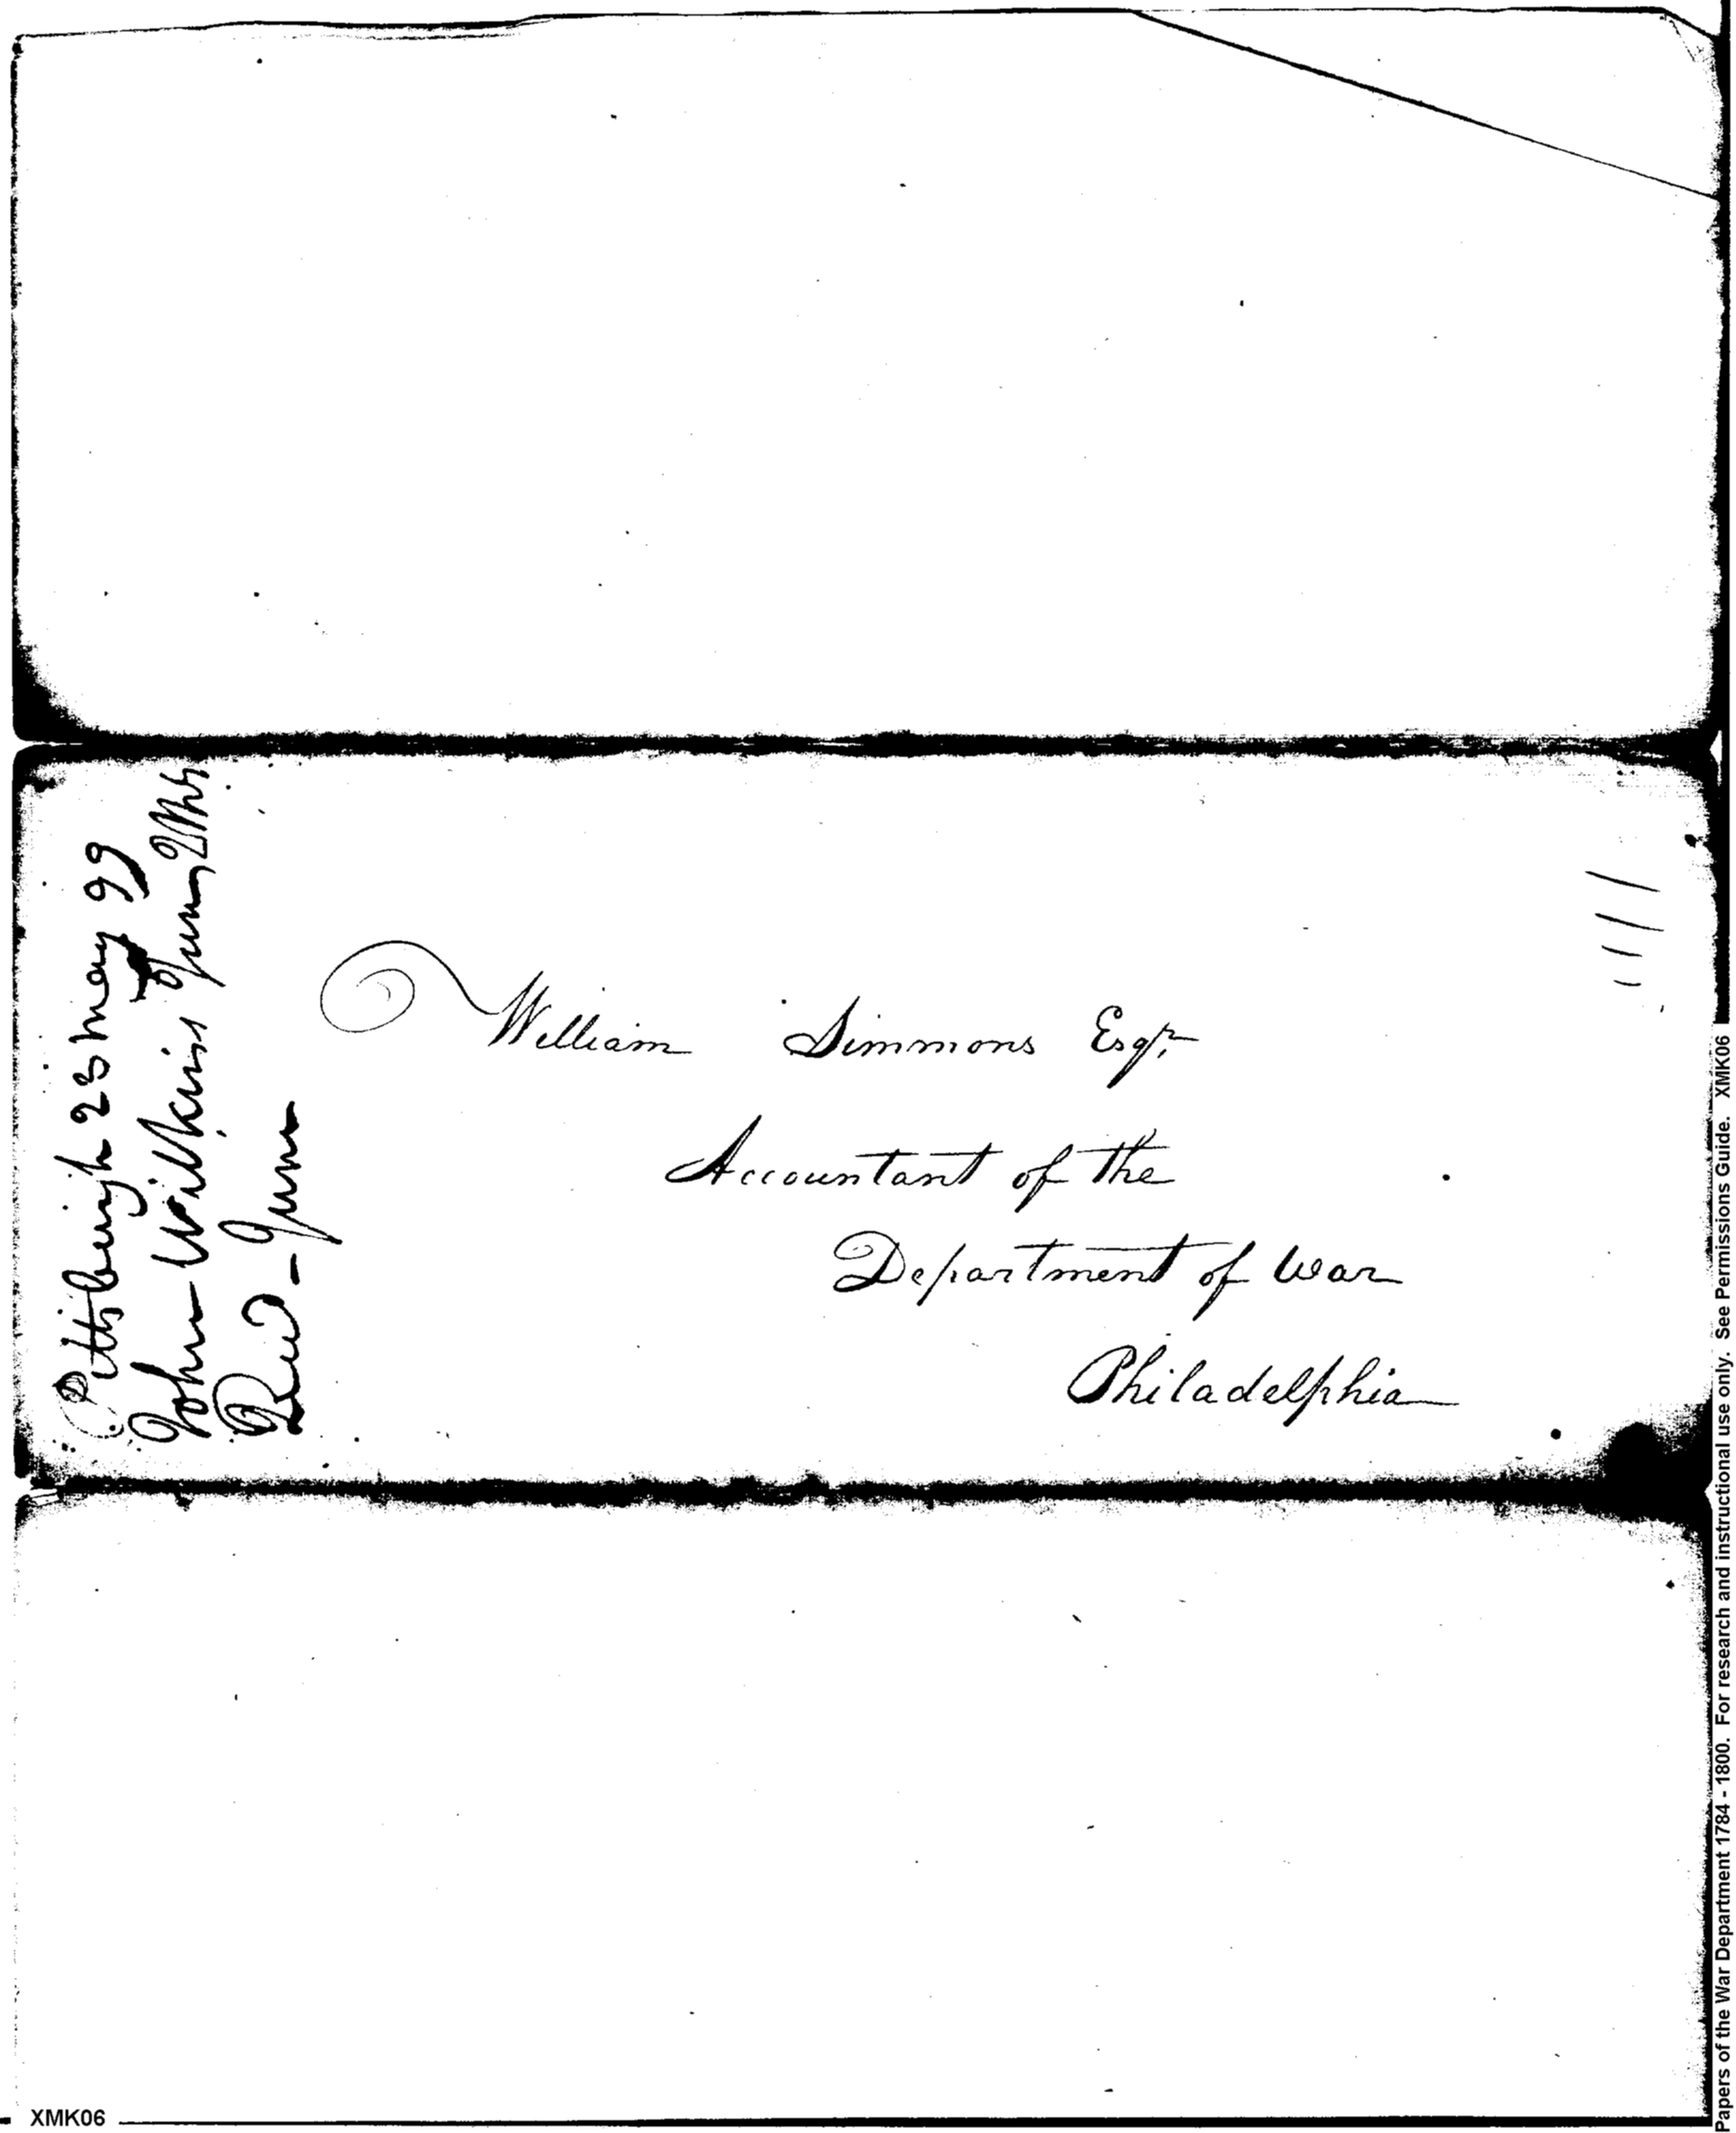 Pittsburgh 23 May 99
John Wilkins Junr QMG
Recd - June
William Simmons Esqr.
Accountant of the
Department of War
Philadelphia
XMK06
Papers of the War Department 1784 - 1800. For research and instructional use only. See Permissions Guide. XMK06